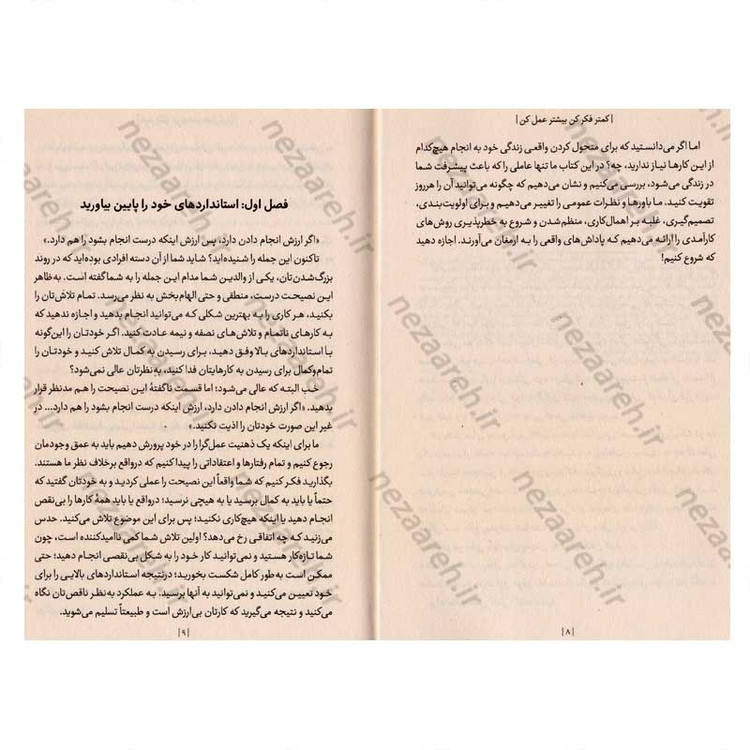 | کمتر فکر کن بیشتر عمل کن |
اما اگر می‌دانستید که برای متحول کردن واقعی زندگی خود به انجام هیچ‌کدام
از این کارها نیاز ندارید، چه؟ در این کتاب ما تنها عاملی را که باعث پیشرفت شما
در زندگی می‌شود، بررسی می‌کنیم و نشان می‌دهیم که چگونه می‌توانید آن را هرروز
تقویت کنید. ما باورها و نظرات عمومی را تغییر می‌دهیم و برای اولویت‌بندی،
تصمیم‌گیری، غلبه بر اهمال‌کاری، منظم‌شدن و شروع به خطرپذیری روش‌های
کارآمدی را ارائه می‌دهیم که پاداش‌های واقعی را به ارمغان می‌آورند. اجازه دهید
که شروع کنیم!
| ۸ |
فصل اول: استانداردهای خود را پایین بیاورید
«اگر ارزش انجام دادن دارد، پس ارزش اینکه درست انجام بشود را هم دارد.»
تاکنون این جمله را شنیده‌اید؟ شاید شما از آن دسته افرادی بوده‌اید که در روند
بزرگ‌شدن‌تان، یکی از والدین شما مدام این جمله را به شما گفته است. به‌ظاهر
این نصیحت درست، منطقی و حتی الهام‌بخش به نظر می‌رسد. تمام تلاش‌تان را
بکنید، هر کاری را به بهترین شکلی که می‌توانید انجام بدهید و اجازه ندهید که
به کارهای ناتمام و تلاش‌های نصفه و نیمه عادت کنید. اگر خودتان را این‌گونه
با استانداردهای بالا وفق دهید، برای رسیدن به کمال تلاش کنید و خودتان را
تمام‌وکمال برای رسیدن به کارهایتان فدا کنید، به نظرتان عالی نمی‌شود؟
خب البته که عالی می‌شود؛ اما قسمت ناگفتهٔ این نصیحت را هم مدنظر قرار
بدهید. «اگر ارزش انجام دادن دارد، ارزش اینکه درست انجام بشود را هم دارد... در
غیر این صورت خودتان را اذیت نکنید.»
ما برای اینکه یک ذهنیت عمل‌گرا را در خود پرورش دهیم باید به عمق وجودمان
رجوع کنیم و تمام رفتارها و اعتقاداتی را پیدا کنیم که درواقع برخلاف نظر ما هستند.
بگذارید فکر کنیم که شما واقعاً این نصیحت را عملی کردید و به خودتان گفتید که
حتماً یا باید به کمال برسید یا به هیچی نرسید؛ درواقع یا باید همهٔ کارها را بی‌نقص
انجام دهید یا اینکه هیچ‌کاری نکنید؛ پس برای این موضوع تلاش می‌کنید. حدس
می‌زنید که چه اتفاقی رخ می‌دهد؟ اولین تلاش شما کمی ناامیدکننده است، چون
شما تازه‌کار هستید و نمی‌توانید کار خود را به شکل بی‌نقصی انجام دهید؛ حتی
ممکن است به‌طور کامل شکست بخورید؛ درنتیجه استانداردهای بالایی را برای
خود تعیین می‌کنید و نمی‌توانید به آنها برسید. به عملکرد به‌نظر ناقص‌تان نگاه
می‌کنید و نتیجه می‌گیرید که کارتان بی‌ارزش است و طبیعتاً تسلیم می‌شوید.
| ۹ |
nezaareh.ir
nezaareh.ir
nezaareh.ir
nezaareh.ir
nezaareh.ir
nezaareh.ir
nezaareh.ir
nezaareh.ir